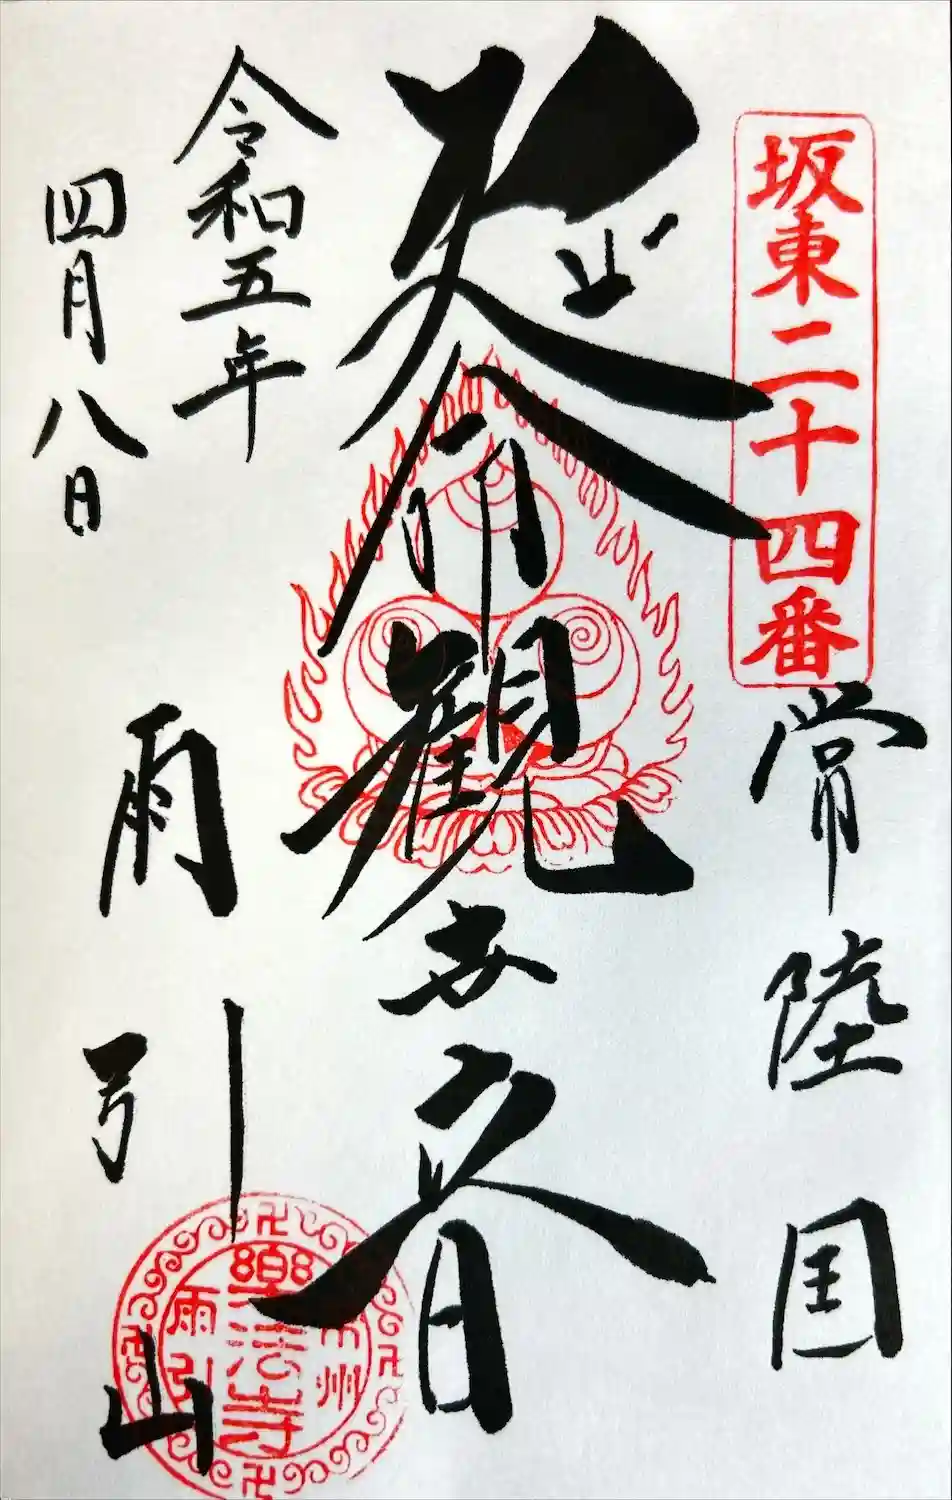 坂東二十四番
常陸国
延命観世音
令和五年
四月八日
雨引山
州
樂法寺
雨引